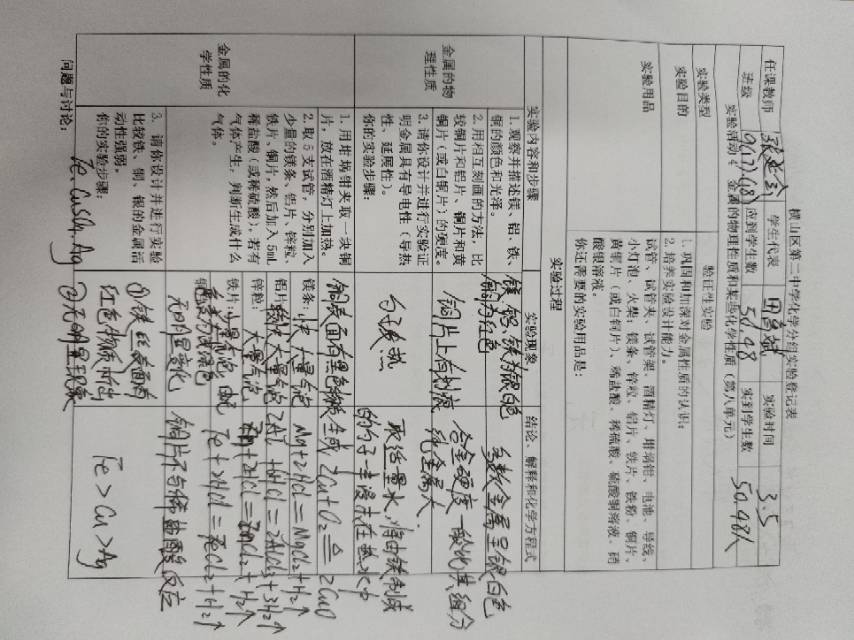 横山区第二中学化学分组实验登记表
任课教师 学生代表 田彦斌 实验时间 3.5
班级 9(7)(8) 应到学生数 50.48 实到学生数 50.48人
实验活动4 金属的物理性质和某些化学性质（第八单元）
实验类型 验证性实验
实验目的 1. 巩固和加深对金属性质的认识；
2. 培养实验设计能力。
实验用品 试管、试管夹、试管架、酒精灯、坩埚钳、电池、导线、
小灯泡、火柴；镁条、锌粒、铝片、铁片、铁粉、铜片、
黄铜片（或白铜片）、稀盐酸、稀硫酸、硫酸铜溶液、硝
酸银溶液。
你还需要的实验用品是：
实验过程
实验内容和步骤 实验现象 结论、解释和化学方程式
金属的物
理性质
1. 观察并描述镁、铝、铁、
铜的颜色和光泽。
镁、铝、铁为银白色
铜为红色
多数金属呈银白色
2. 用相互刻画的方法，比
较铜片和铝片、铜片和黄
铜片（或白铜片）的硬度。
铜片上有划痕
合金硬度一般比其组分
纯金属大
3. 请你设计并进行实验证
明金属具有导电性（导热
性、延展性）。
你的实验步骤：
勺子发热
取适量水，将由铁制成
的勺子一半浸泡在热水中
金属的化
学性质
1. 用坩埚钳夹取一块铜
片，放在酒精灯上加热。
铜表面有黑色物质生成
2Cu+O₂ ≜ 2CuO
2. 取5支试管，分别加入
少量的镁条、铝片、锌粒、
铁片、铜片，然后加入5mL
稀盐酸（或稀硫酸）。若有
气体产生，判断生成什么
气体。
镁条: 大量气泡
铝片: 大量气泡
锌粒: 大量气泡
铁片: 少量气泡
无明显变化
Mg+2HCl=MgCl₂+H₂↑
2Al+6HCl=2AlCl₃+3H₂↑
Zn+2HCl=ZnCl₂+H₂↑
Fe+2HCl=FeCl₂+H₂↑
铜片不与稀盐酸反应
3. 请你设计并进行实验
比较铁、铜、银的金属活
动性强弱。
你的实验步骤：
Fe CuSO₄ Ag
①铁丝表面有
红色物质附件
②无明显现象
Fe>Cu>Ag
问题与讨论：